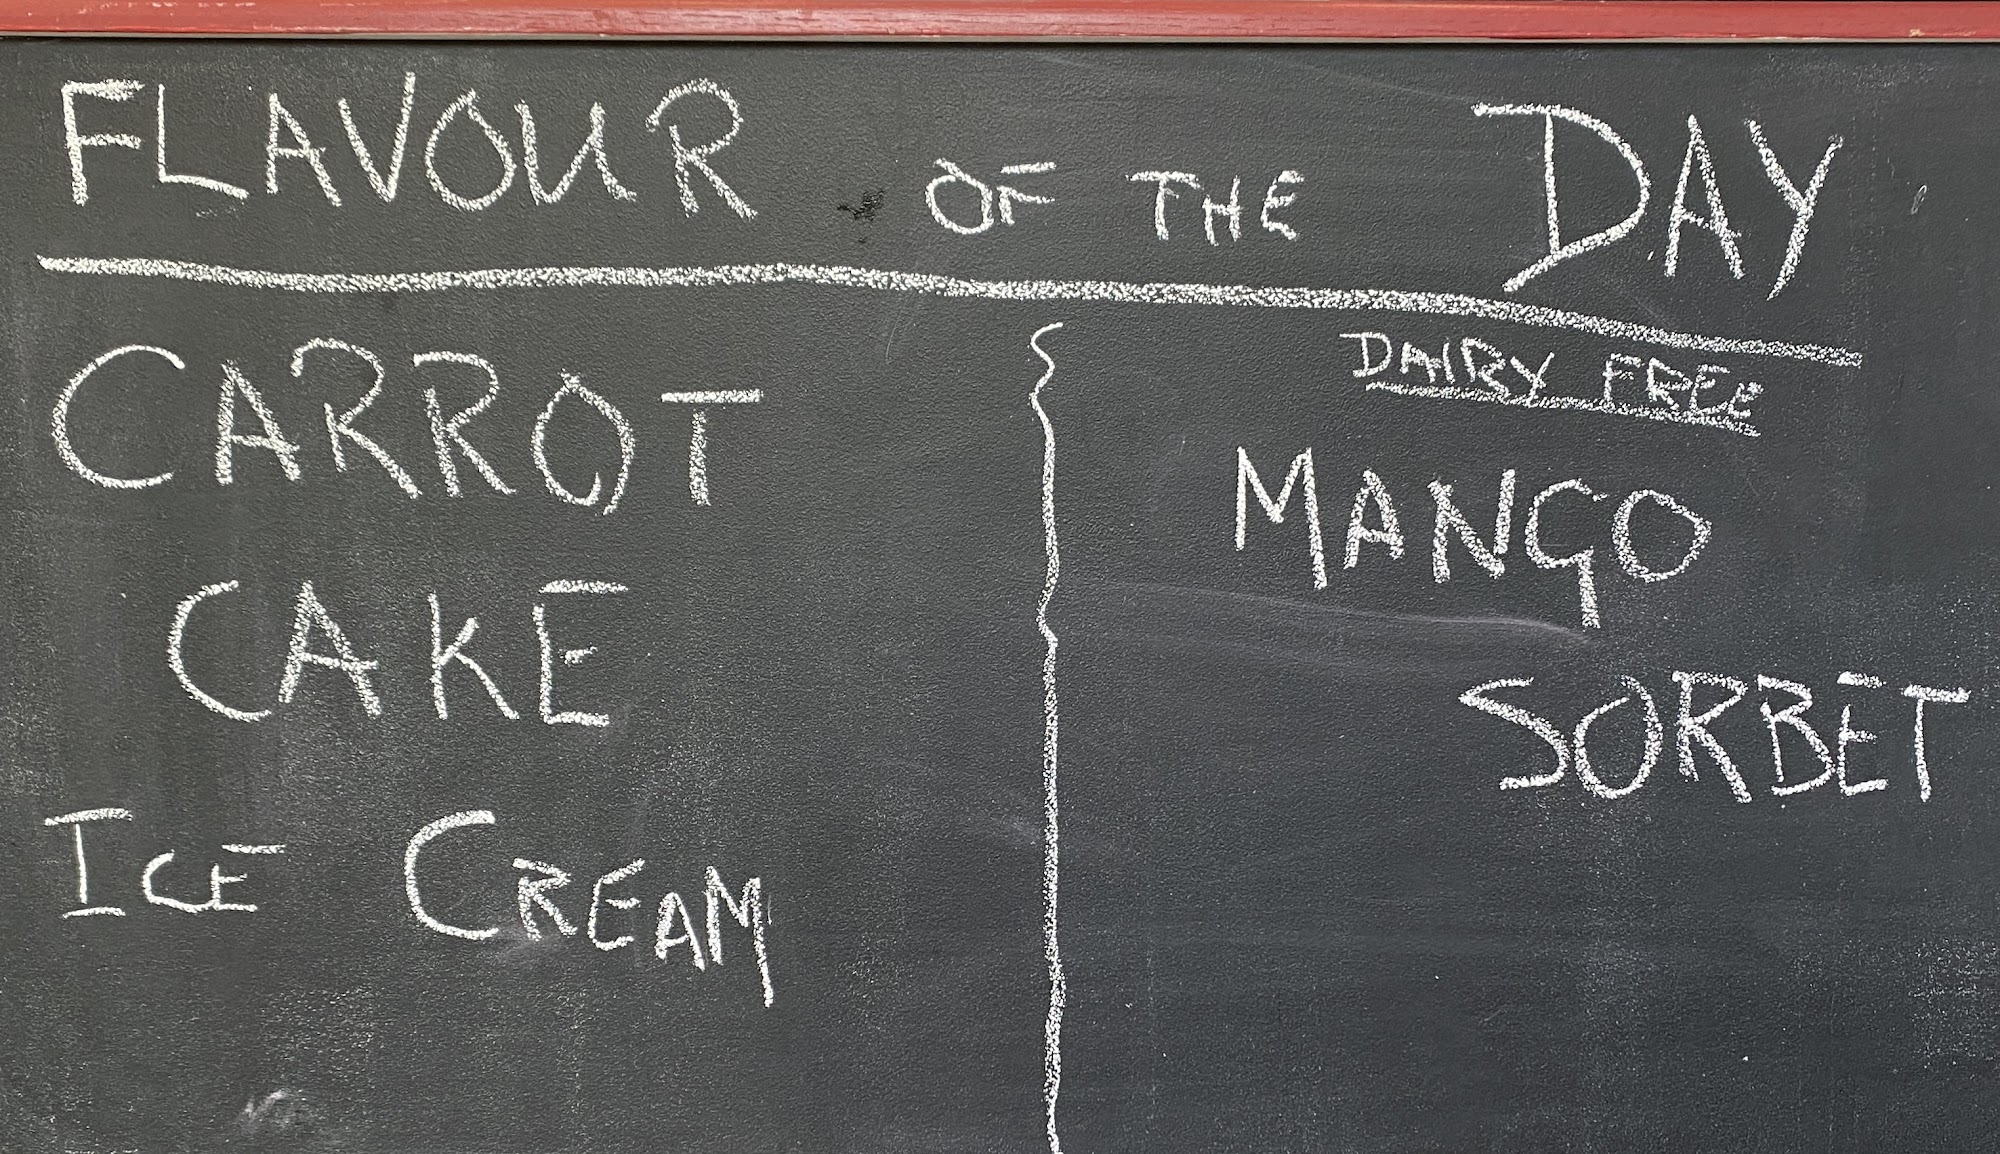 FLAVOUR OF THE DAY
CARROT
CAKE
ICE CREAM
DAIRY FREE
MANGO
SORBET